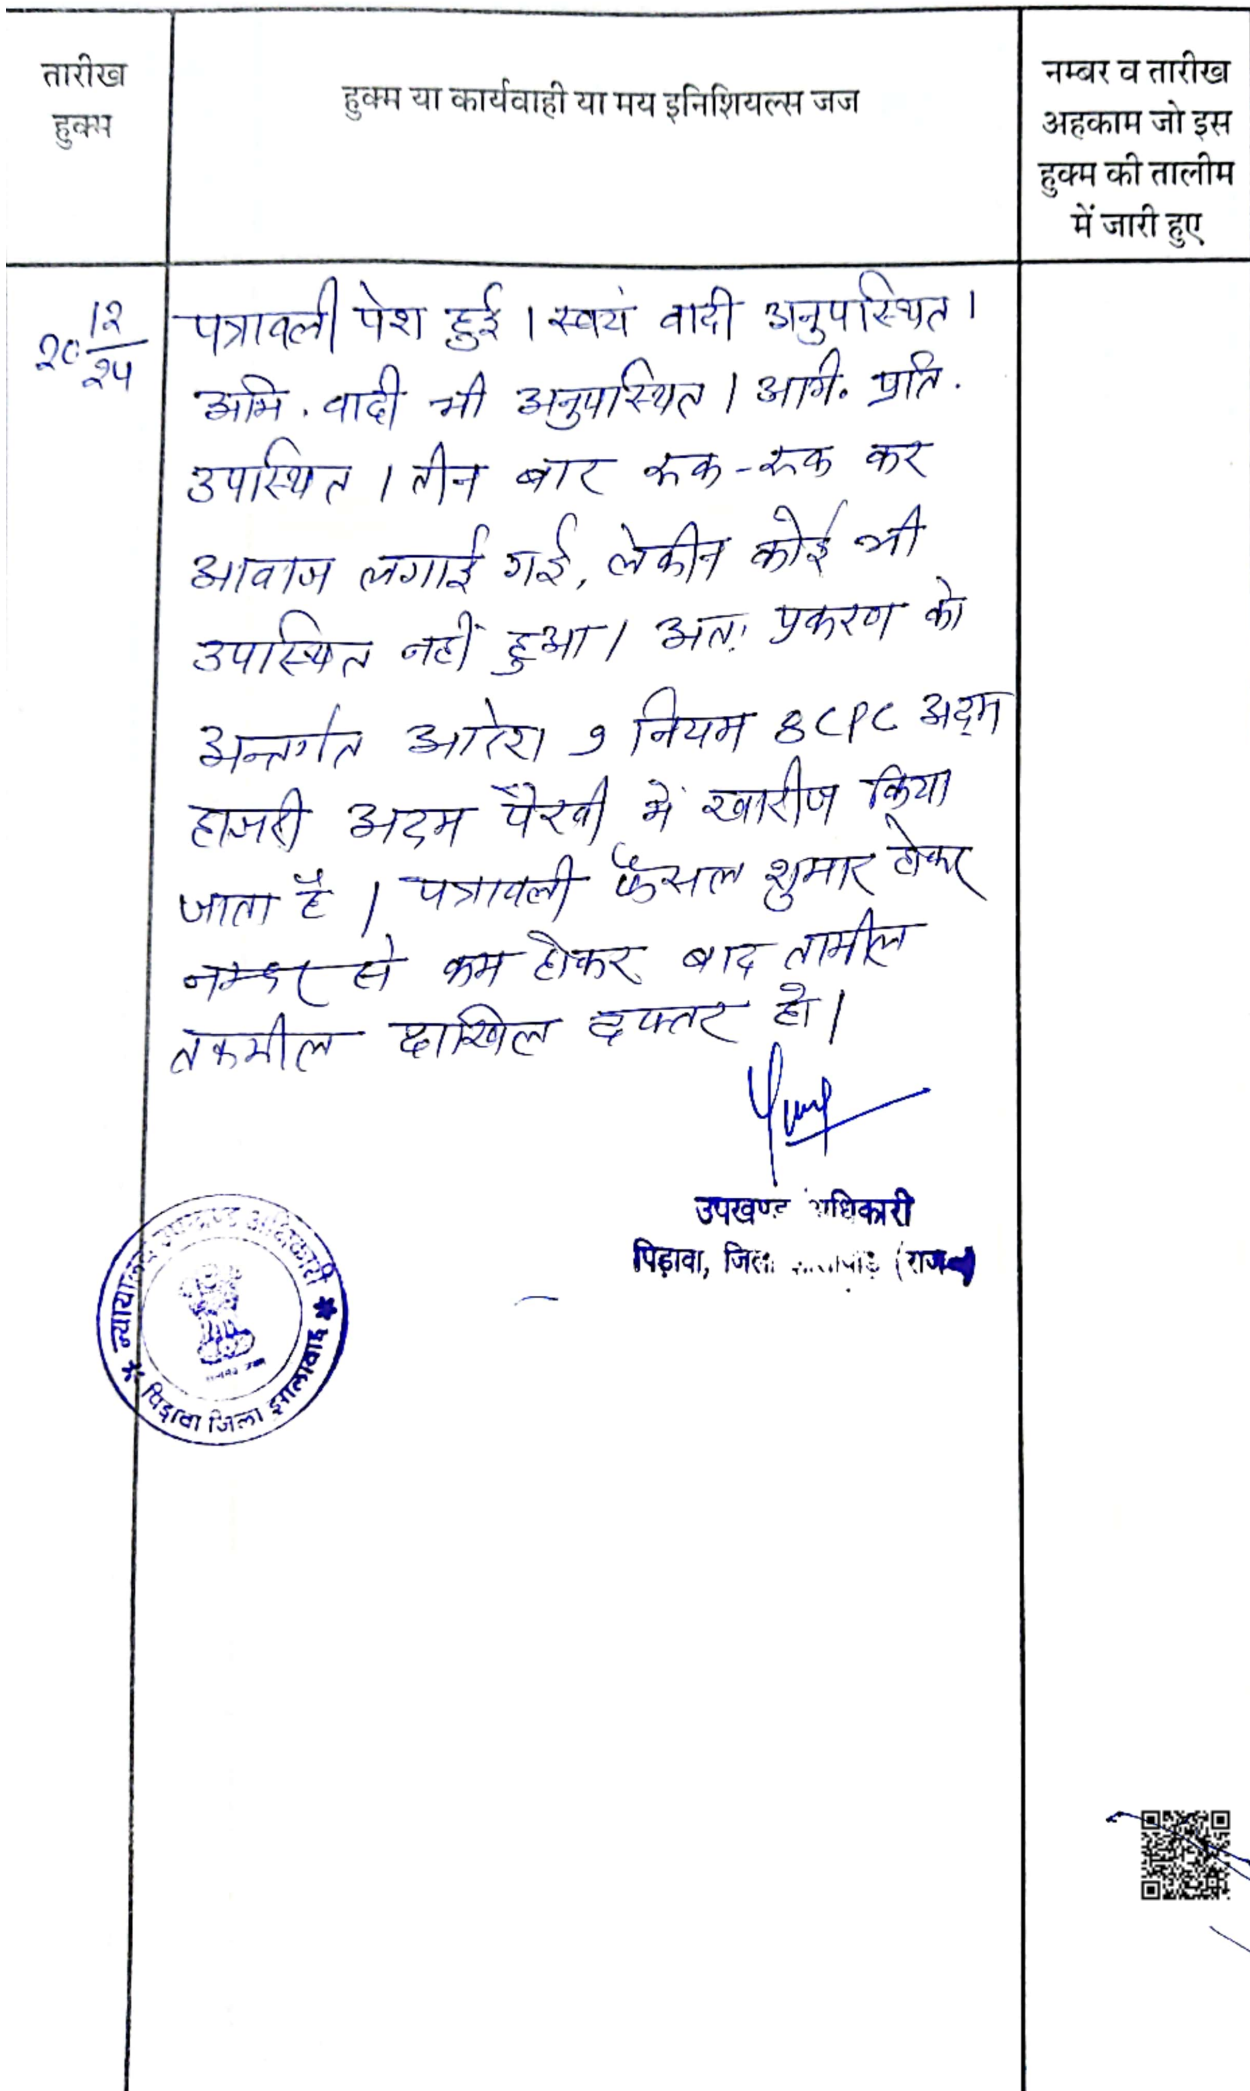 तारीख
हुक्म
हुक्म या कार्यवाही या मय इनिशियल्स जज
नम्बर व तारीख
अहकाम जो इस
हुक्म की तालीम
में जारी हुए
२०/१२/२५
पत्रावली पेश हुई । स्वयं वादी अनुपस्थित ।
अभि. वादी भी अनुपस्थित । अभि. प्रति.
उपस्थित । तीन बार रूक-रूक कर
आवाज लगाई गई, लेकीन कोई भी
उपस्थित नहीं हुआ । अतः प्रकरण को
अन्तर्गत आदेश 9 नियम 8 CPC अदम
हाजरी अदम पैरवी में खारीज किया
जाता है । पत्रावली फैसल शुमार होकर
नम्बर से कम होकर बाद तामील
तकमील दाखिल दफ्तर हो ।
उपखण्ड अधिकारी
पिड़ावा, जिला (राज
न्यायालय उपखण्ड अधिकारी
पिड़ावा जिला झालावाड़